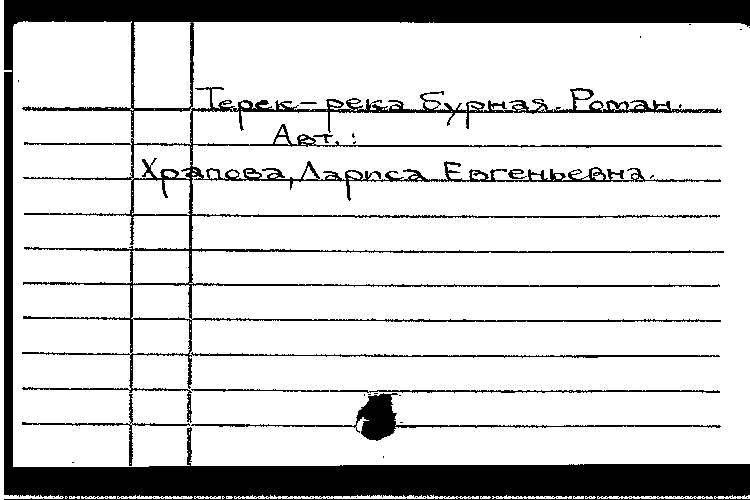 Терек-река бурная. Роман.
Авт.:
Храпова, Лариса Евгеньевна.